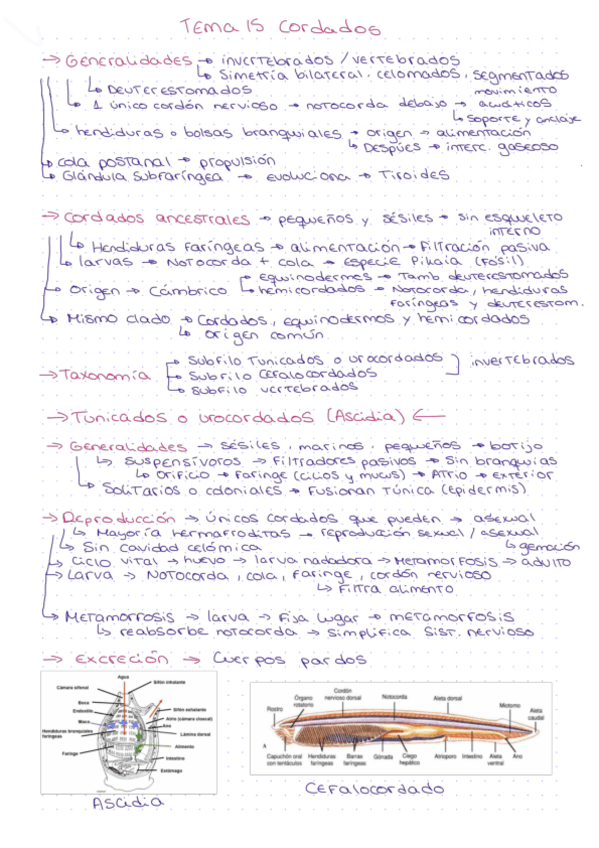 Tema 15 Cordados
→ Generalidades → invertebrados / vertebrados
↳ Simetría bilateral. celomados. segmentados
↳ Deuterestomados
movimiento
↳ 1 único cordón nervioso → notocorda debajo → acuáticos
↳ Soporte y anclaje
↳ hendiduras o bolsas branquiales → origen → alimentación
↳ Después → interc. gaseoso
→ cola postanal → propulsión
→ Glándula subfaríngea → evoluciona → Tiroides
→ Cordados ancestrales → pequeños y sésiles → sin esqueleto
interno
↳ Hendiduras faríngeas → alimentación → Filtración pasiva
↳ larvas → Notocorda + cola → especie Pikaia (Fósil)
→ Origen → Cámbrico → equinodermos → Tamb deuterestomados
↳ hemicordados → Notocorda, hendiduras
faríngeas y deuterestom.
→ Mismo clado → Cordados, equinodermos y hemicordados
↳ origen común
→ Taxonomía → Subfilo Tunicados o urocordados
→ Subfilo Cefalocordados
→ Subfilo vertebrados
invertebrados
→ Tunicados o urocordados (Ascidia) ←
→ Generalidades → Sésiles, marinos, pequeños → botijo
↳ suspensívoros → Filtradores pasivos → Sin branquias
↳ Orificio → Faringe (cilios y mucus) → Atrio → exterior
↳ Solitarios o coloniales → Fusionan túnica (epidermis)
→ Reproducción → únicos cordados que pueden → asexual
↳ Mayoría hermafroditas → reproducción sexual / asexual
↳ Sin cavidad celómica
↳ gemación
→ Ciclo vital → huevo → larva nadadora → Metamorfosis → adulto
→ Larva → Notocorda, cola, faringe, cordón nervioso
↳ Filtra alimento
→ Metamorfosis → larva → Fija lugar → metamorfosis
↳ reabsorbe notocorda → simplifica sist. nervioso
→ Excreción → Cuerpos pardos
Agua
Cámara sifonal
Sifón inhalante
Boca
Endostilo
Manto
Hendiduras branquiales
faríngeas
Faringe
Sifón exhalante
Atrio (cámara cloacal)
Ano
Lámina dorsal
Alimento
Intestino
Estómago
Ascidia
Rostro
Órgano
rotatorio
Cordón
nervioso dorsal
Notocorda
Aleta dorsal
Miotomo
Aleta
caudal
A
Capuchón oral
con tentáculos
Hendiduras
faríngeas
Barras
faríngeas
Gónada
Ciego
hepático
Atrioporo
Intestino
Aleta
ventral
Ano
Cefalocordado